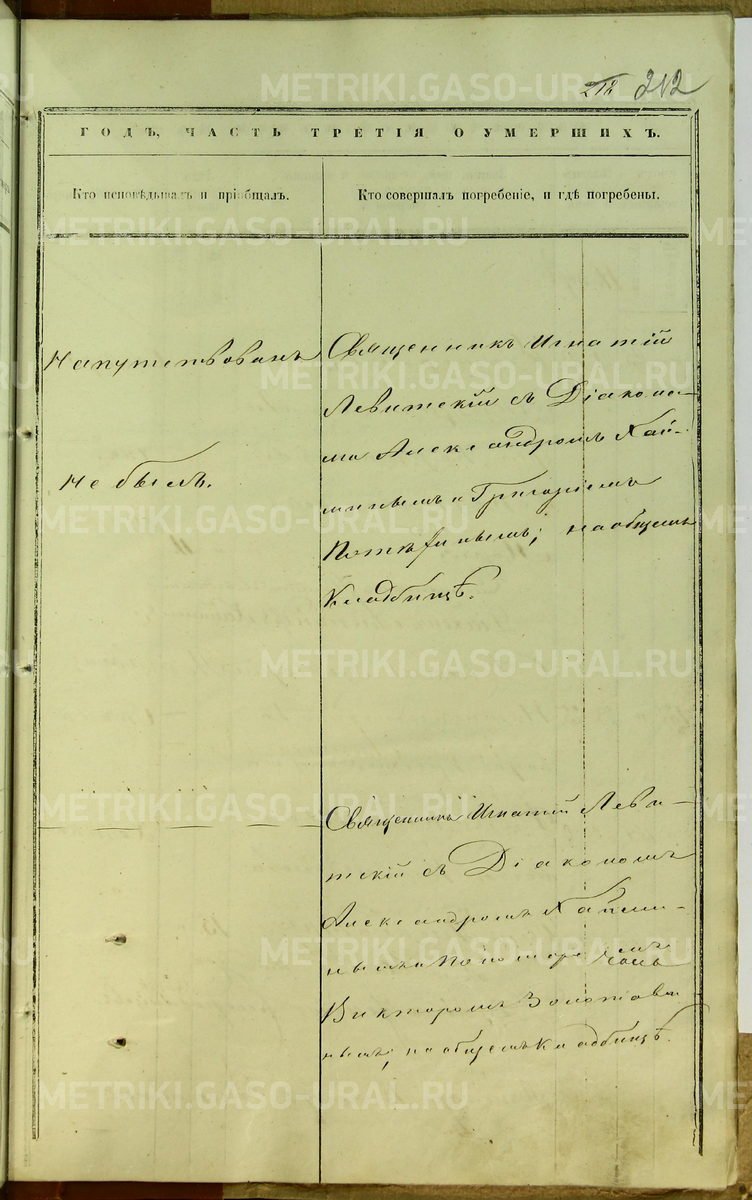 212 212
ГОДЪ, ЧАСТЬ ТРЕТІЯ О УМЕРШИХЪ.
Кто исповѣдывалъ и пріобщалъ.
Кто совершалъ погребеніе, и гдѣ погребены.
Напутствованъ
не былъ.
Священникъ Игнатій
Левитскій съ Діакона-
ми Александромъ Хай-
минымъ и Григоріемъ
на общемъ
Кладбищѣ.
Священникъ Игнатій Леви-
тскій съ Діакономъ
Александромъ Хайми-
нымъ и Пономаремъ
Викторомъ
нымъ; на общемъ Кладбищѣ.
METRIKI.GASO-URAL.RU